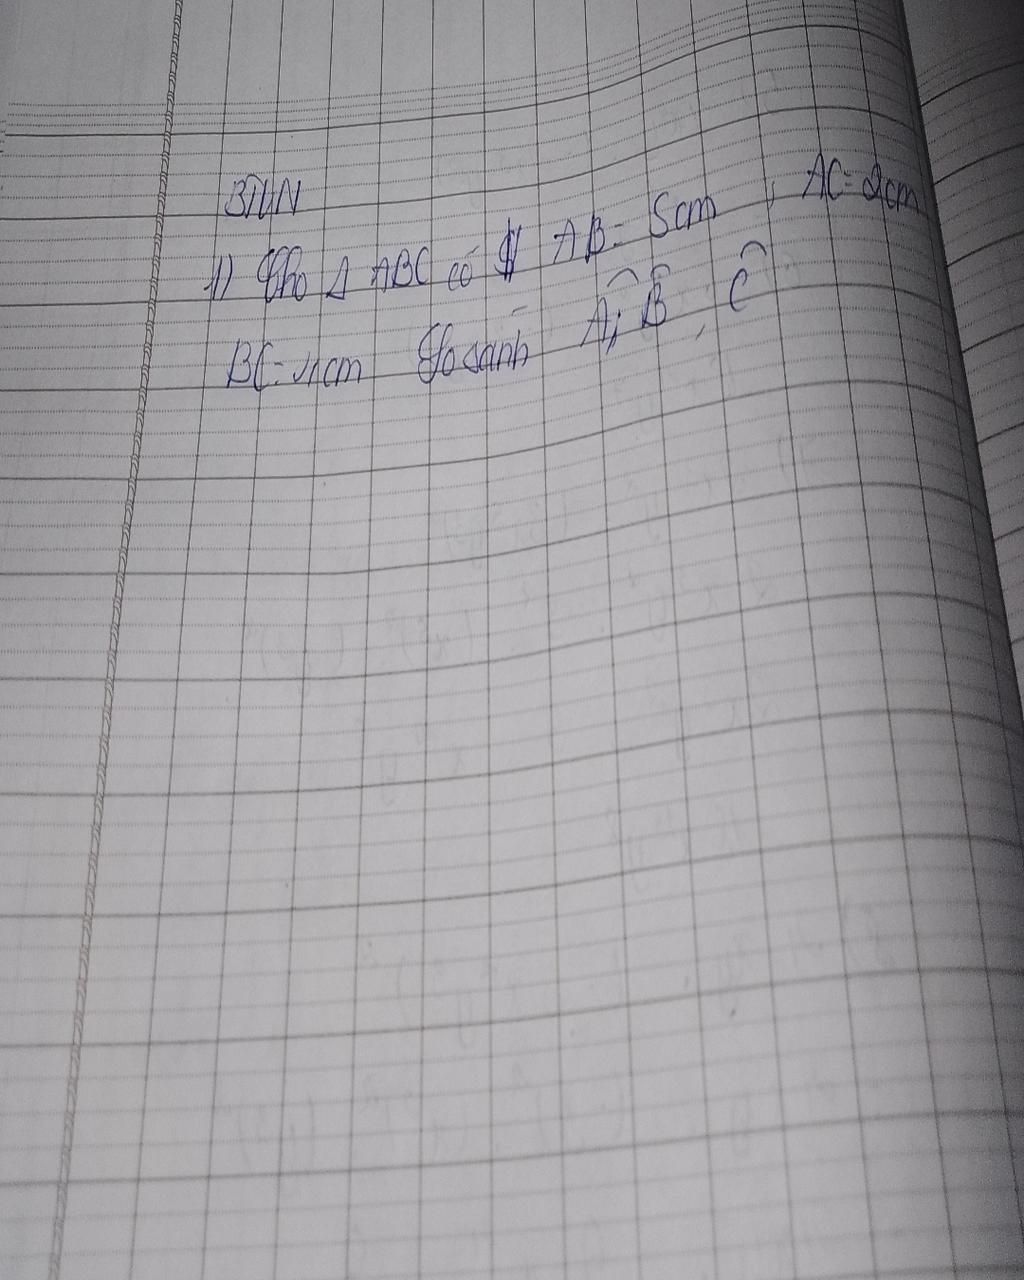 BTVN
1) Cho Δ ABC có AB = 5cm, AC = 2cm
BC = 4cm So sánh Â, B̂, Ĉ